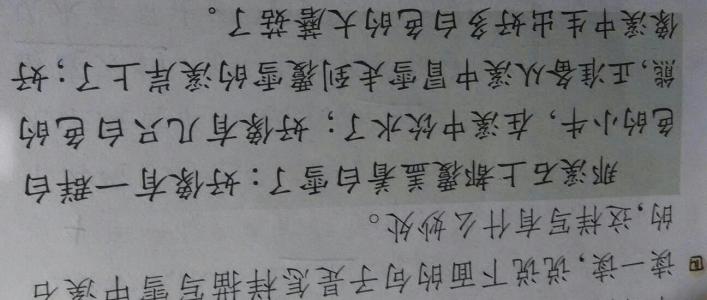 读一读,说说下面的句子是怎样描写雪中溪石
的,这样写有什么妙处。
那溪石上都覆盖着白雪了：好像有一群白
色的小牛，在溪中饮水了；好像有几只白色的
熊，正准备从溪中冒雪走到覆雪的溪岸上了；好
像溪中生出好多白色的大蘑菇了。